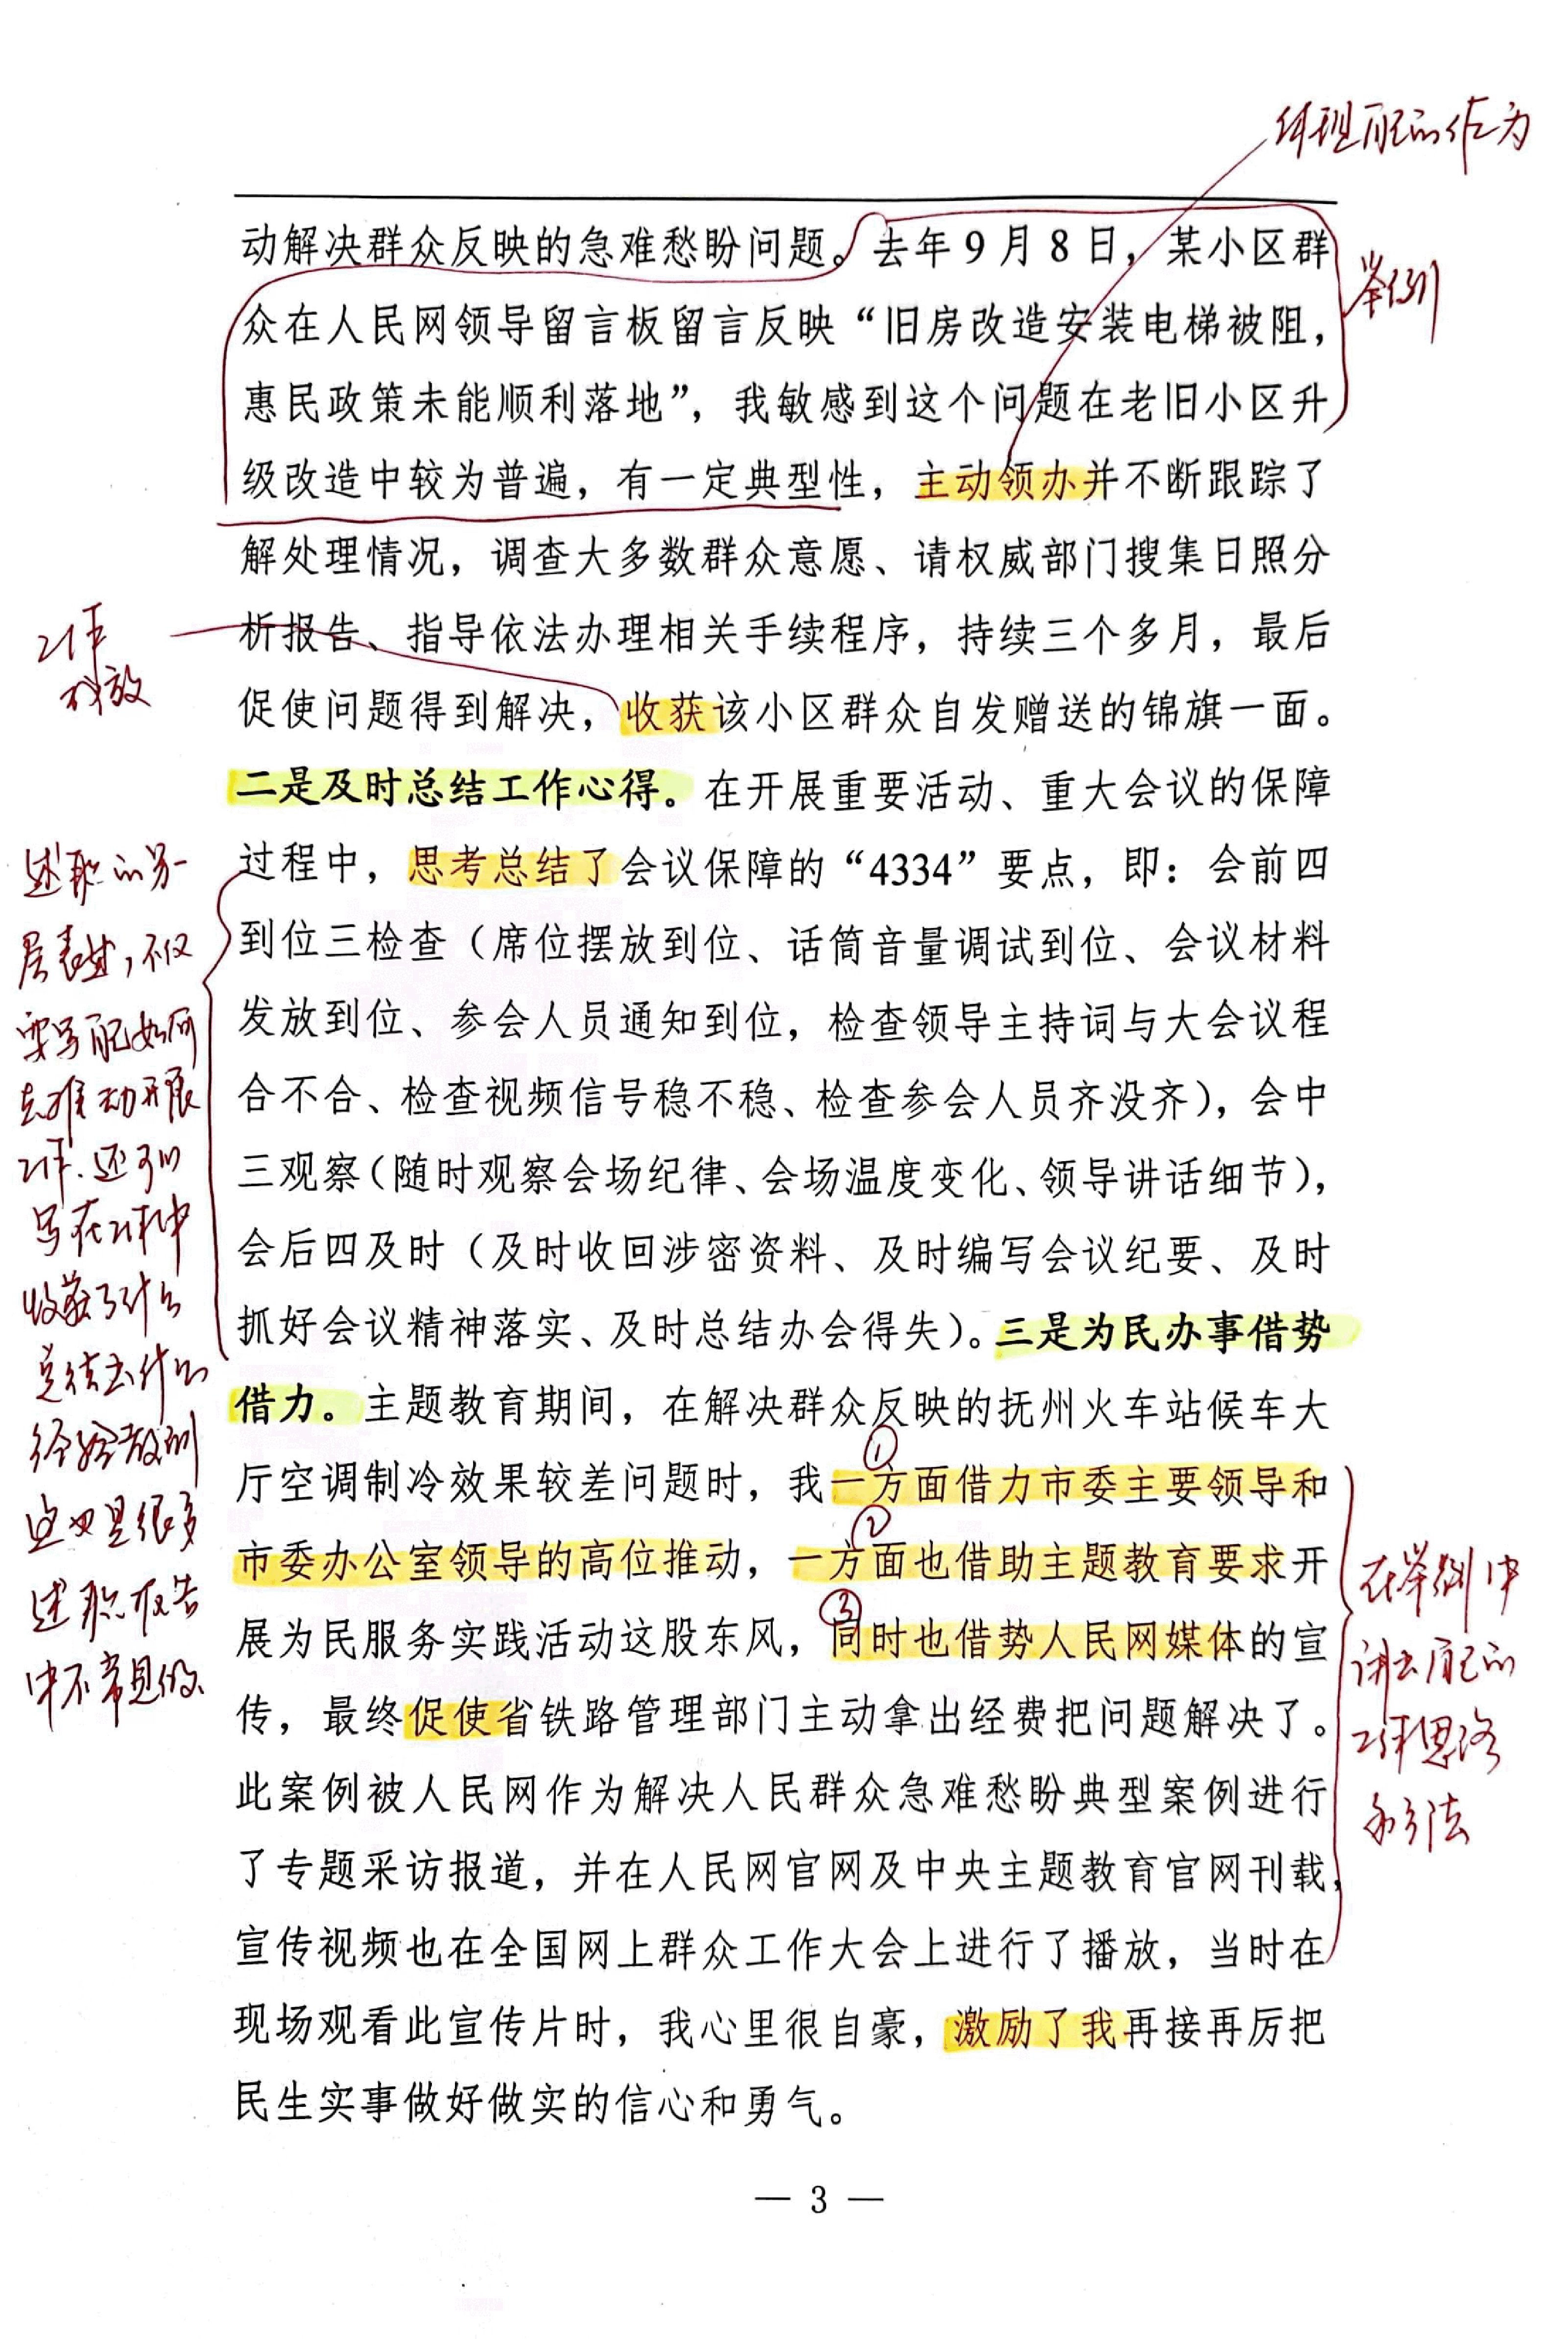 体现自己的作为
动解决群众反映的急难愁盼问题。去年9月8日，某小区群
举例
众在人民网领导留言板留言反映“旧房改造安装电梯被阻，
惠民政策未能顺利落地”，我敏感到这个问题在老旧小区升
级改造中较为普遍，有一定典型性，主动领办并不断跟踪了
解处理情况，调查大多数群众意愿、请权威部门搜集日照分
析报告、指导依法办理相关手续程序，持续三个多月，最后
工作
促使问题得到解决，收获该小区群众自发赠送的锦旗一面。
二是及时总结工作心得。在开展重要活动、重大会议的保障
过程中，思考总结了会议保障的“4334”要点，即：会前四
到位三检查（席位摆放到位、话筒音量调试到位、会议材料
发放到位、参会人员通知到位，检查领导主持词与大会议程
合不合、检查视频信号稳不稳、检查参会人员齐没齐），会中
三观察（随时观察会场纪律、会场温度变化、领导讲话细节），
会后四及时（及时收回涉密资料、及时编写会议纪要、及时
抓好会议精神落实、及时总结办会得失）。三是为民办事借势
借力。主题教育期间，在解决群众反映的抚州火车站候车大
①
厅空调制冷效果较差问题时，我一方面借力市委主要领导和
②
市委办公室领导的高位推动，一方面也借助主题教育要求开
③
展为民服务实践活动这股东风，同时也借势人民网媒体的宣
传，最终促使省铁路管理部门主动拿出经费把问题解决了。
此案例被人民网作为解决人民群众急难愁盼典型案例进行
了专题采访报道，并在人民网官网及中央主题教育官网刊载，
宣传视频也在全国网上群众工作大会上进行了播放，当时在
现场观看此宣传片时，我心里很自豪，激励了我再接再厉把
民生实事做好做实的信心和勇气。
述职的另一
层表述，不仅
要写自己如何
去推动开展
工作，还可以
写在工作中
收获了什么
总结出什么
经验教训
这也是很多
述职报告
中不常见的
在举例中
讲出自己的
工作思路
和方法
— 3 —